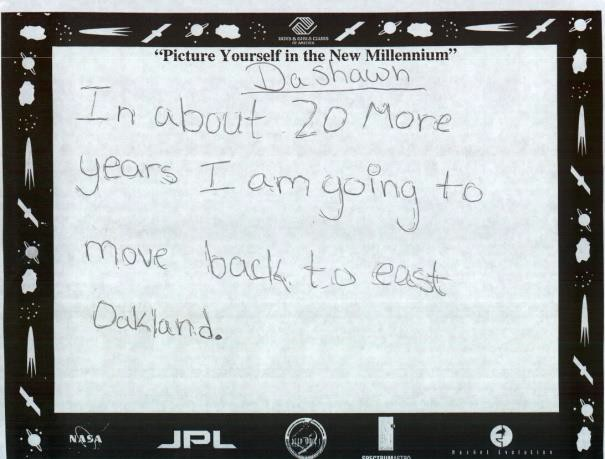 BOYS & GIRLS CLUBS
OF AMERICA
"Picture Yourself in the New Millennium"
DaShawn
In about 20 More
years I am going to
move back to east
Oakland.
NASA
JPL
SPECTRUMASTRO
Market Evolution